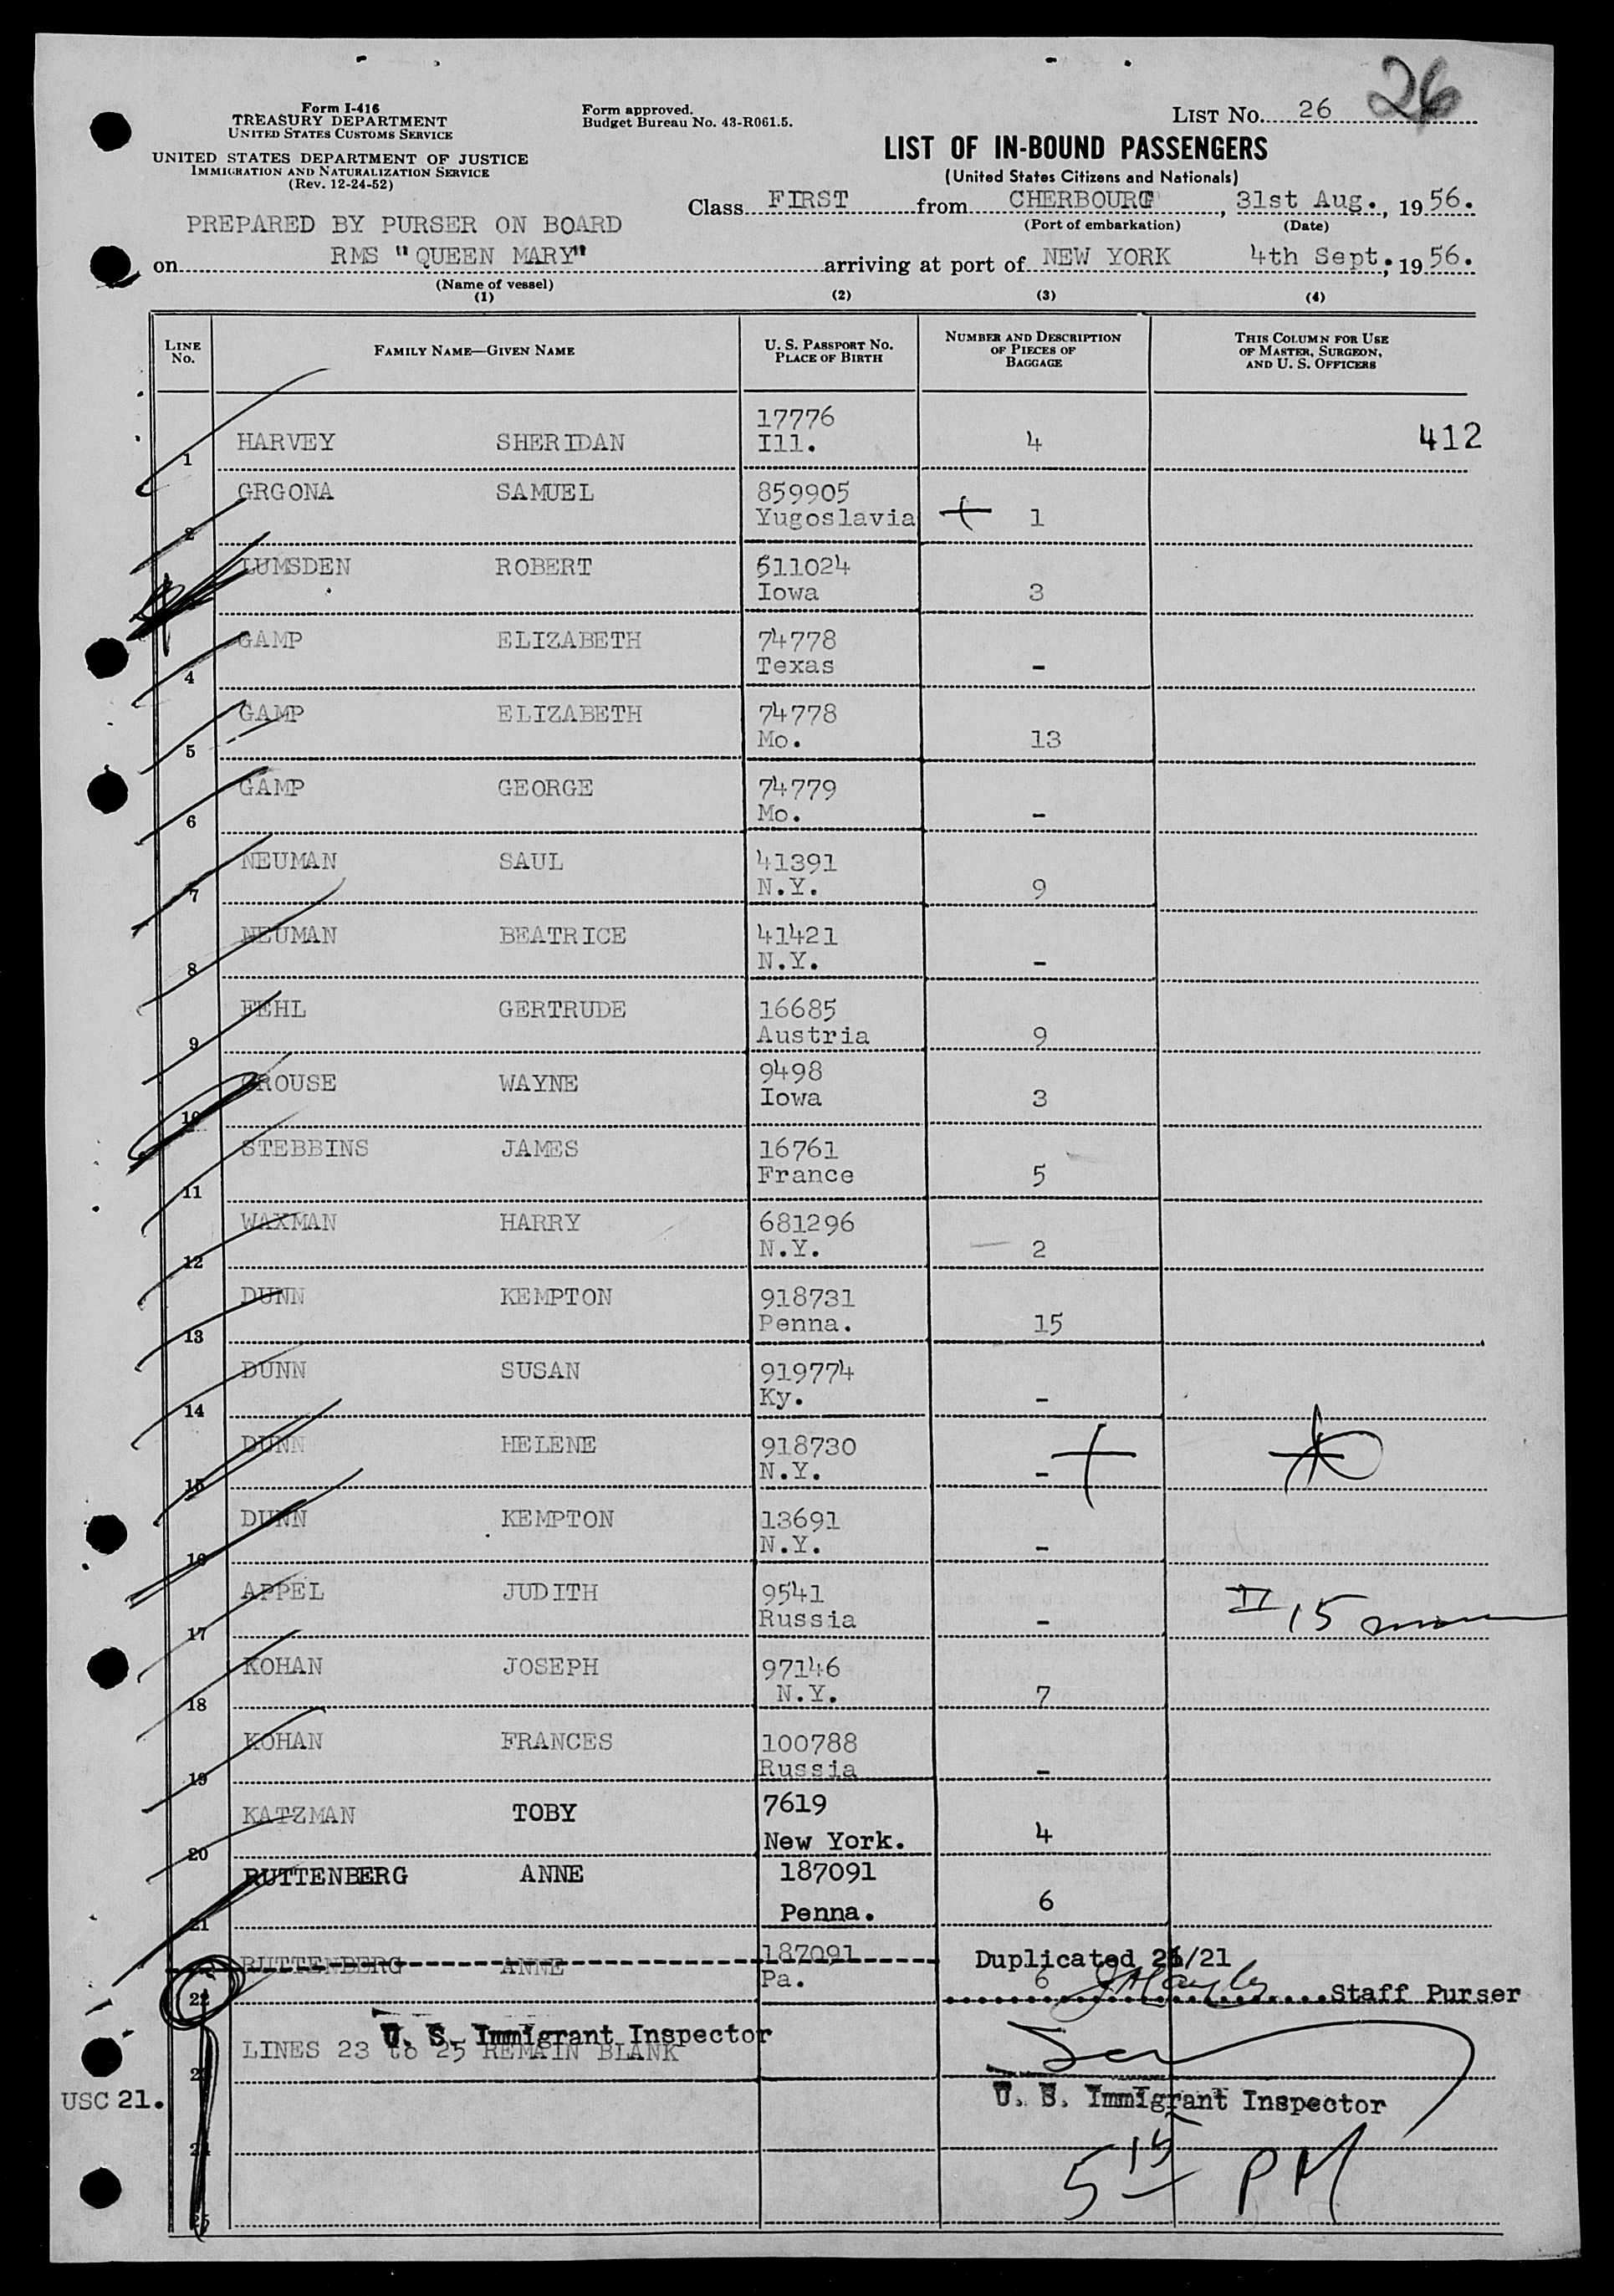 26
Form I-416
TREASURY DEPARTMENT
UNITED STATES CUSTOMS SERVICE
UNITED STATES DEPARTMENT OF JUSTICE
IMMIGRATION AND NATURALIZATION SERVICE
(Rev. 12-24-52)
Form approved.
Budget Bureau No. 43-R061.5.
LIST No. 26
LIST OF IN-BOUND PASSENGERS
(United States Citizens and Nationals)
Class FIRST from CHERBOURG, 31st Aug., 1956.
(Port of embarkation) (Date)
PREPARED BY PURSER ON BOARD
on RMS "QUEEN MARY" arriving at port of NEW YORK 4th Sept., 1956.
(Name of vessel)
(1) (2) (3) (4)
LINE No. FAMILY NAME—GIVEN NAME U. S. PASSPORT No. PLACE OF BIRTH NUMBER AND DESCRIPTION OF PIECES OF BAGGAGE THIS COLUMN FOR USE OF MASTER, SURGEON, AND U. S. OFFICERS
17776
1 HARVEY SHERIDAN Ill. 4 412
2 GRGONA SAMUEL 859905
Yugoslavia 1
LUMSDEN ROBERT 511024
Iowa 3
4 GAMP ELIZABETH 74778
Texas -
5 GAMP ELIZABETH 74778
Mo. 13
6 GAMP GEORGE 74779
Mo. -
7 NEUMAN SAUL 41391
N.Y. 9
8 NEUMAN BEATRICE 41421
N.Y. -
9 FEHL GERTRUDE 16685
Austria 9
10 CROUSE WAYNE 9498
Iowa 3
11 STEBBINS JAMES 16761
France 5
12 WAXMAN HARRY 681296
N.Y. 2
13 DUNN KEMPTON 918731
Penna. 15
14 DUNN SUSAN 919774
Ky. -
15 DUNN HELENE 918730
N.Y. -
16 DUNN KEMPTON 13691
N.Y. -
17 APPEL JUDITH 9541
Russia - II 15
18 KOHAN JOSEPH 97146
N.Y. 7
19 KOHAN FRANCES 100788
Russia -
20 KATZMAN TOBY 7619
New York. 4
21 RUTTENBERG ANNE 187091
Penna. 6
22 RUTTENBERG ANNE 187091 Duplicated 26/21
Pa. 6 Staff Purser
U. S. Immigrant Inspector
LINES 23 to 25 REMAIN BLANK
USC 21.
U. S. Immigrant Inspector
24
5 15 PM
25